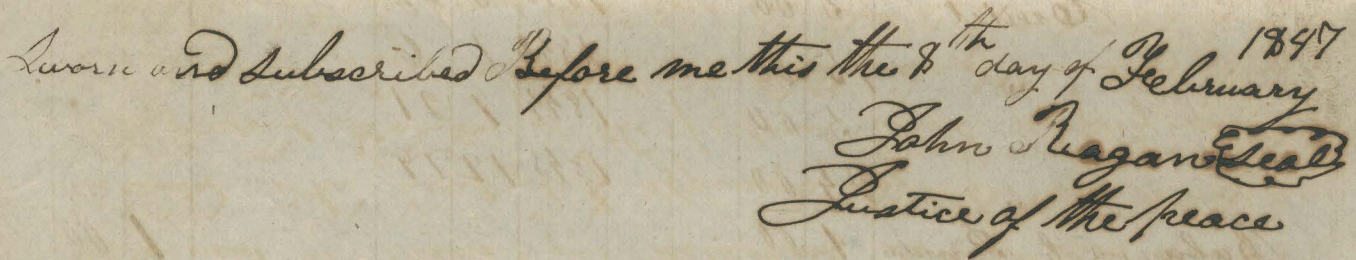 Sworn and subscribed Before me this the 8th day of February 1847
John Reagan Seal
Justice of the peace